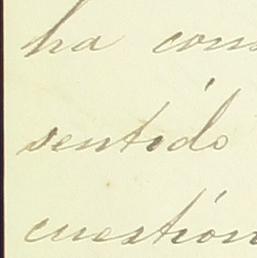 ha cons
sentido
cuestión